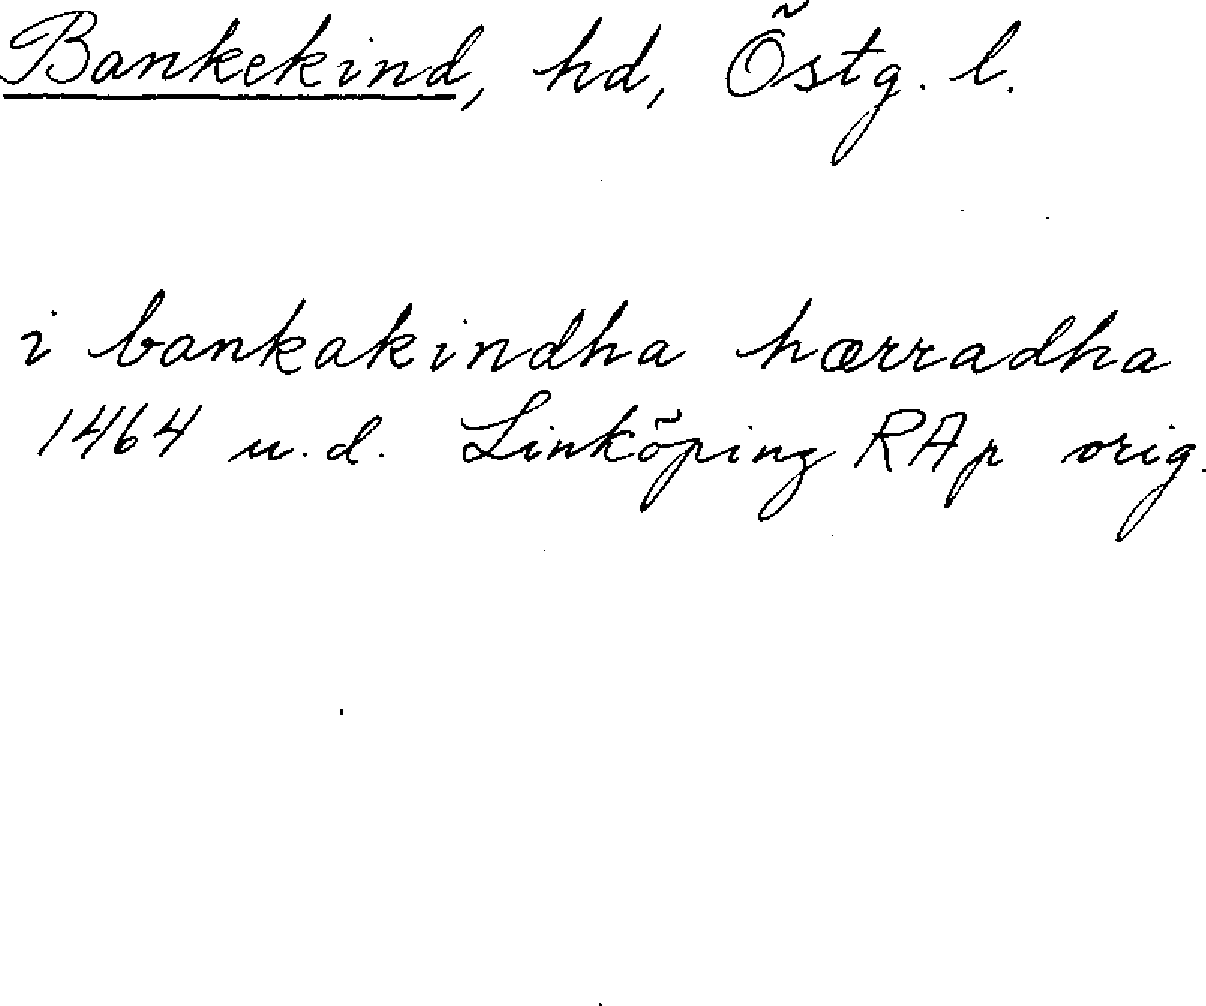 Bankekind, hd, Östg. l.
i bankakindha hærradha
1464 u.d. Linköping RAp orig.